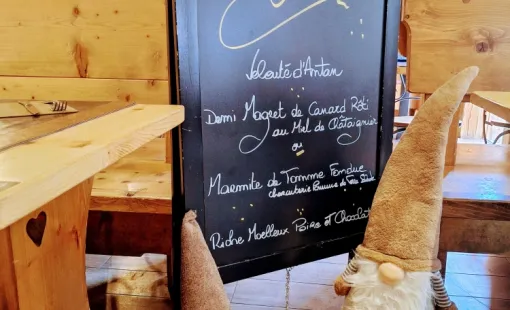 Velouté d'Antan
Demi Magret de Canard Rôti
au Miel de Châtaignier
ou
Marmite de Tomme Fondue
charcuterie Pomme de Terre
Riche Moelleux Poire et Chocolat